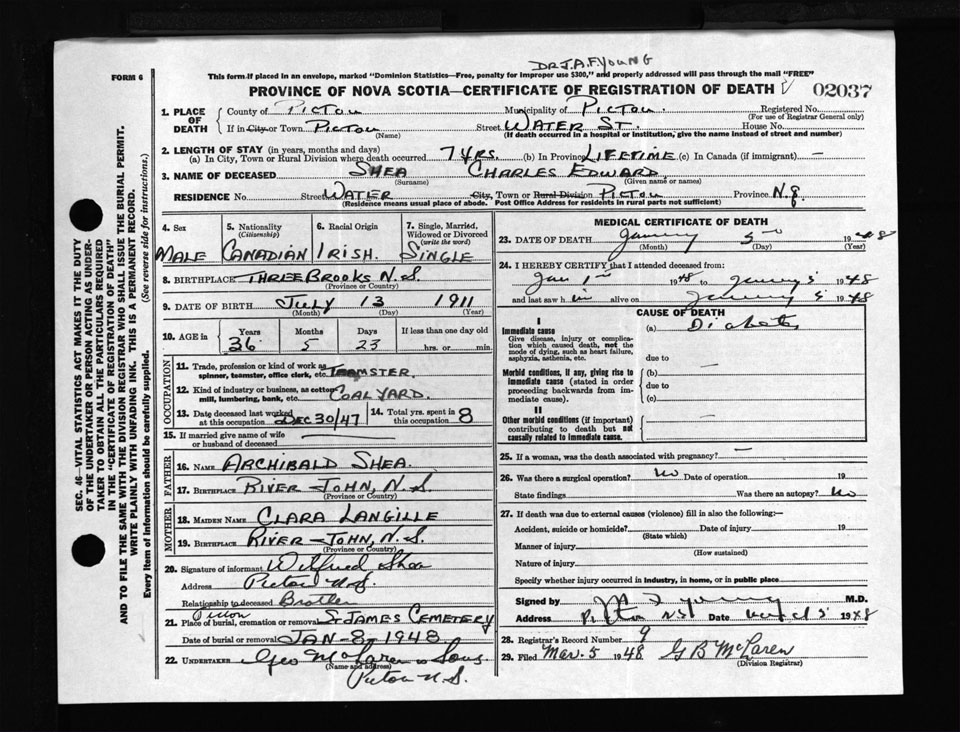 DR J.A.F. YOUNG
FORM 6
This form if placed in an envelope, marked "Dominion Statistics—Free, penalty for improper use $300," and properly addressed will pass through the mail "FREE"
PROVINCE OF NOVA SCOTIA—CERTIFICATE OF REGISTRATION OF DEATH
02037
1. PLACE OF DEATH
County of PICTOU Municipality of PICTOU. Registered No.
(For use of Registrar General only)
If in City or Town PICTOU Street WATER ST. House No.
(Name) (If death occurred in a hospital or institution, give the name instead of street and number)
2. LENGTH OF STAY (in years, months and days)
(a) In City, Town or Rural Division where death occurred 7 yrs. (b) In Province LIFETIME (c) In Canada (if immigrant) —
3. NAME OF DECEASED SHEA CHARLES EDWARD
(Surname) (Given name or names)
RESIDENCE No. Street WATER City, Town or Rural Division PICTOU Province N.S.
(Residence means usual place of abode. Post Office Address for residents in rural parts not sufficient)
4. Sex 5. Nationality (Citizenship) 6. Racial Origin 7. Single, Married, Widowed or Divorced (write the word)
MALE CANADIAN IRISH. SINGLE
8. BIRTHPLACE THREE BROOKS N.S.
(Province or Country)
9. DATE OF BIRTH JULY 13 1911
(Month) (Day) (Year)
10. AGE in Years Months Days If less than one day old
36 5 23 hrs. or min.
OCCUPATION
11. Trade, profession or kind of work as spinner, teamster, office clerk, etc. TEAMSTER.
12. Kind of industry or business, as cotton mill, lumbering, bank, etc. COAL YARD.
13. Date deceased last worked at this occupation DEC 30/47 14. Total yrs. spent in this occupation 8
15. If married give name of wife or husband of deceased
FATHER
16. NAME ARCHIBALD SHEA.
17. BIRTHPLACE RIVER JOHN, N.S.
(Province or Country)
MOTHER
18. MAIDEN NAME CLARA LANGILLE
19. BIRTHPLACE RIVER-JOHN, N.S.
(Province or Country)
20. Signature of informant Wilfred Shea
Address Pictou N.S.
Relationship to deceased Brother
Pictou
21. Place of burial, cremation or removal ST. JAMES CEMETERY
Date of burial or removal JAN-8-1948
22. UNDERTAKER Geo McLaren & Sons.
(Name and address)
Pictou N.S.
MEDICAL CERTIFICATE OF DEATH
23. DATE OF DEATH January 5 1948
(Month) (Day) (Year)
24. I HEREBY CERTIFY that I attended deceased from:
Jan 1 1948 to January 5 1948
and last saw him alive on January 5 1948
CAUSE OF DEATH
I
Immediate cause
Give disease, injury or complication which caused death, not the mode of dying, such as heart failure, asphyxia, asthenia, etc.
(a) Diabetes
due to
Morbid conditions, if any, giving rise to immediate cause (stated in order proceeding backwards from immediate cause).
(b) —
due to
(c)
II
Other morbid conditions (if important) contributing to death but not causally related to immediate cause.
25. If a woman, was the death associated with pregnancy? —
26. Was there a surgical operation? No Date of operation 19
State findings Was there an autopsy? No
27. If death was due to external causes (violence) fill in also the following:—
Accident, suicide or homicide? Date of injury 19
(State which)
Manner of injury
(How sustained)
Nature of injury
Specify whether injury occurred in industry, in home, or in public place
Signed by Young M.D.
Address Pictou NS Date 5 1948
28. Registrar's Record Number 9
29. Filed Mar. 5 1948 G B McLaren
(Division Registrar)
SEC. 46—VITAL STATISTICS ACT MAKES IT THE DUTY
OF THE UNDERTAKER OR PERSON ACTING AS UNDER-
TAKER TO OBTAIN ALL THE PARTICULARS REQUIRED
IN THE "CERTIFICATE OF REGISTRATION OF DEATH"
AND TO FILE THE SAME WITH THE DIVISION REGISTRAR WHO SHALL ISSUE THE BURIAL PERMIT.
WRITE PLAINLY WITH UNFADING INK. THIS IS A PERMANENT RECORD.
Every item of information should be carefully supplied. (See reverse side for instructions.)